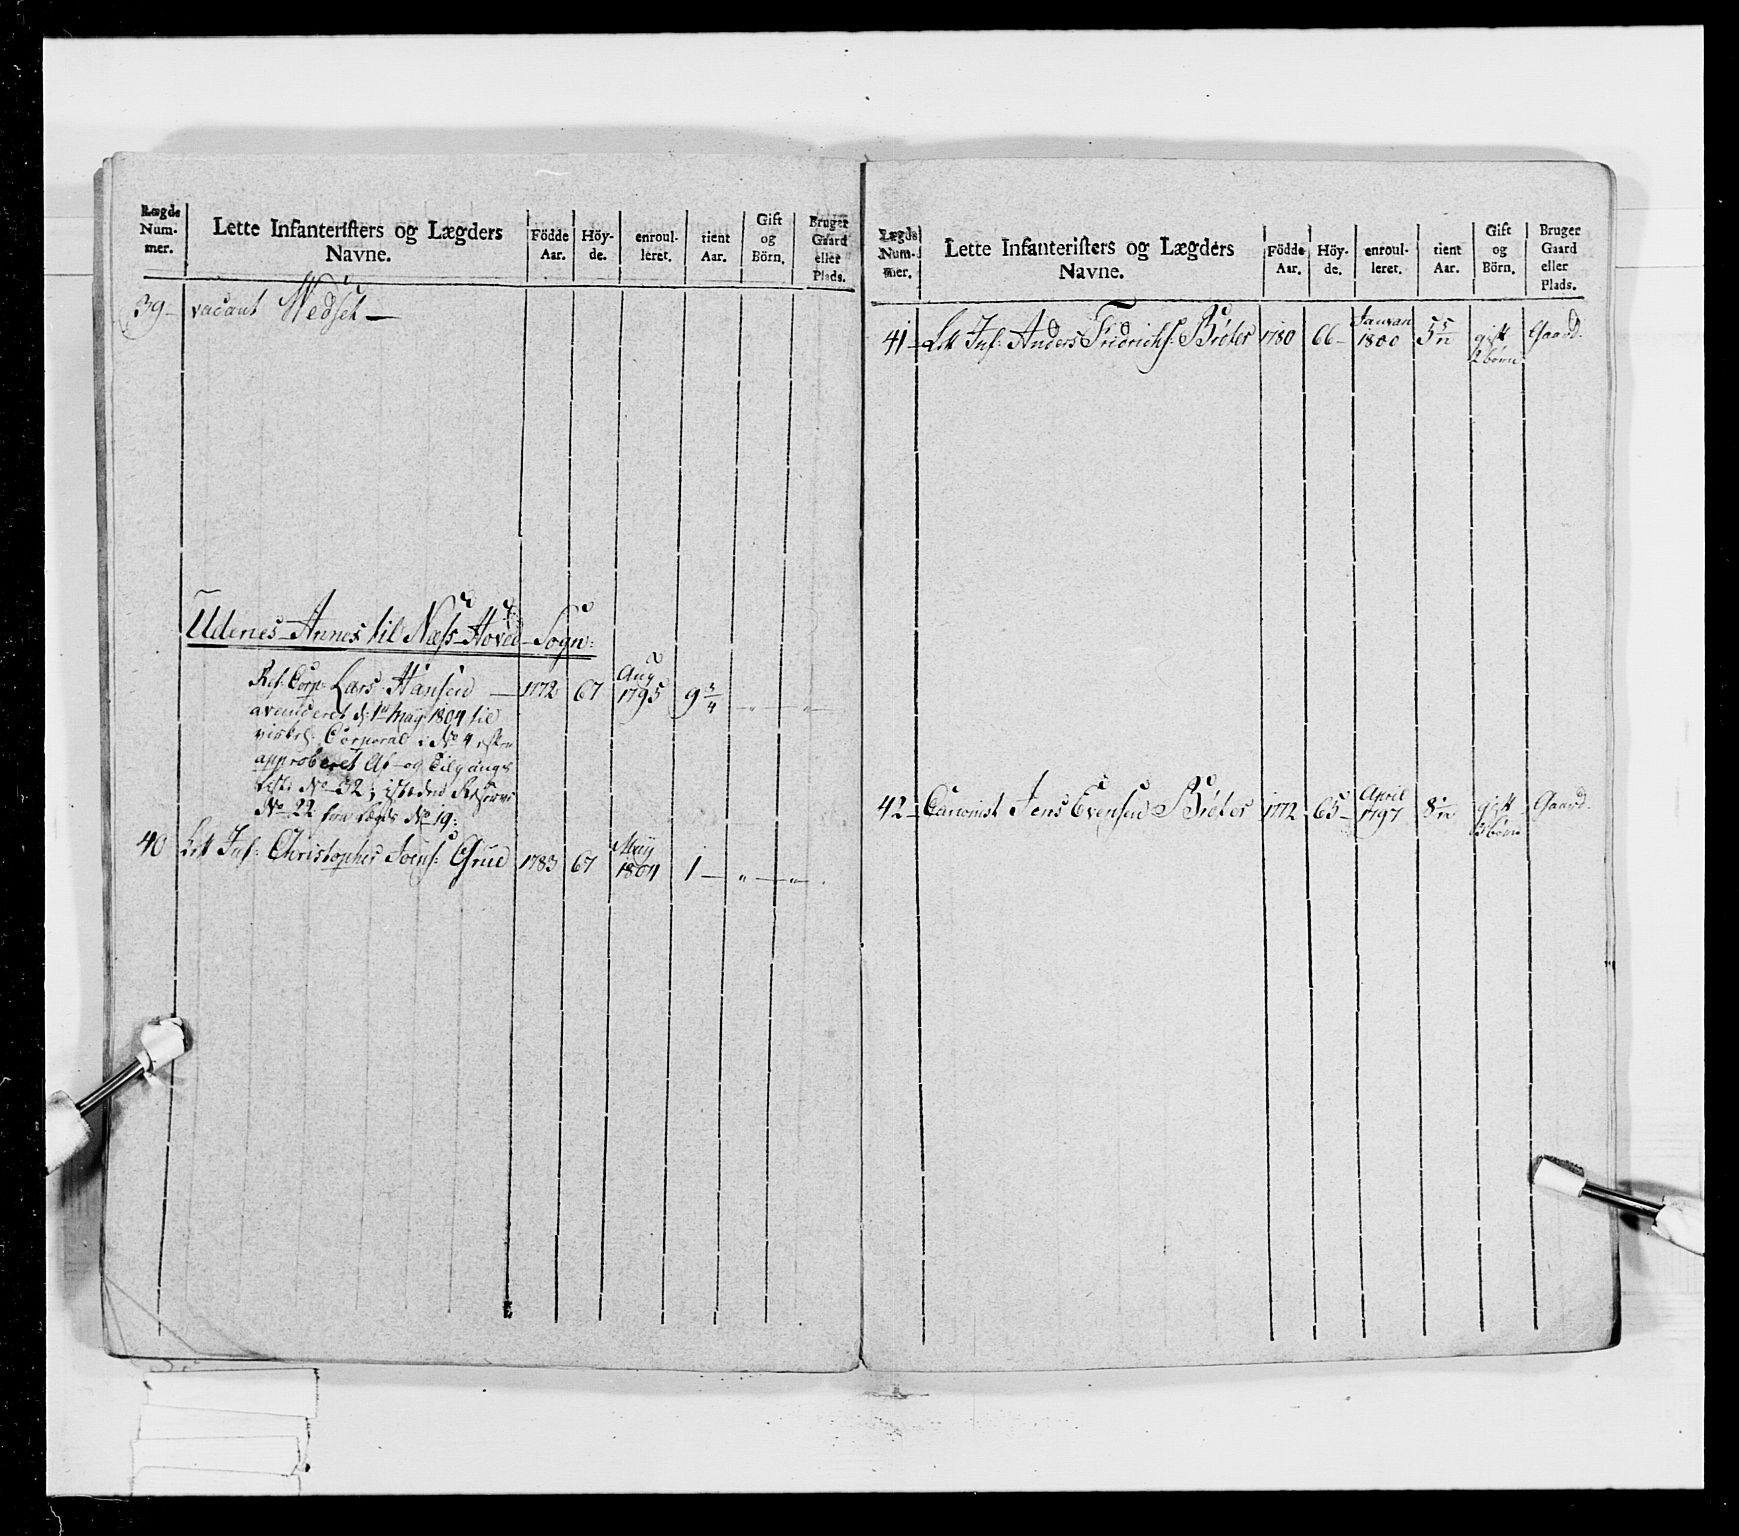 Lægds Num- mer.
Lette Infanteristers og Lægders Navne.
Födde Aar.
Höy- de.
enroul- leret.
tient Aar.
Gift og Börn.
Bruger Gaard eller Plads.
39 vacant Wedset
Udenes Annex til Næss Hoved Sogn:
Res: Corp: Lars Hansen 1772 67 Aug 1795 9 3/4 " "
avanceret d: 1st May 1804 til
Corporal i No 4 efter
approberet Af- og Tilgangs
Liste No 32; istæden Reserve
No 22 fra Lægds No 19:
40 Let Inf: Christopher Joens: Grue 1783 67 May 1804 1 " "
Lægds Num- mer.
Lette Infanteristers og Lægders Navne.
Födde Aar.
Höy- de.
enroul- leret.
tient Aar.
Gift og Börn.
Bruger Gaard eller Plads.
41 Let Inf: Anders Fridrichs: Bröter 1780 66 Januari 1800 5 5/12 gift 2 børn Gaard.
42 Evensen Bröter 1772 65 April 1797 gift 3 børn Gaard.